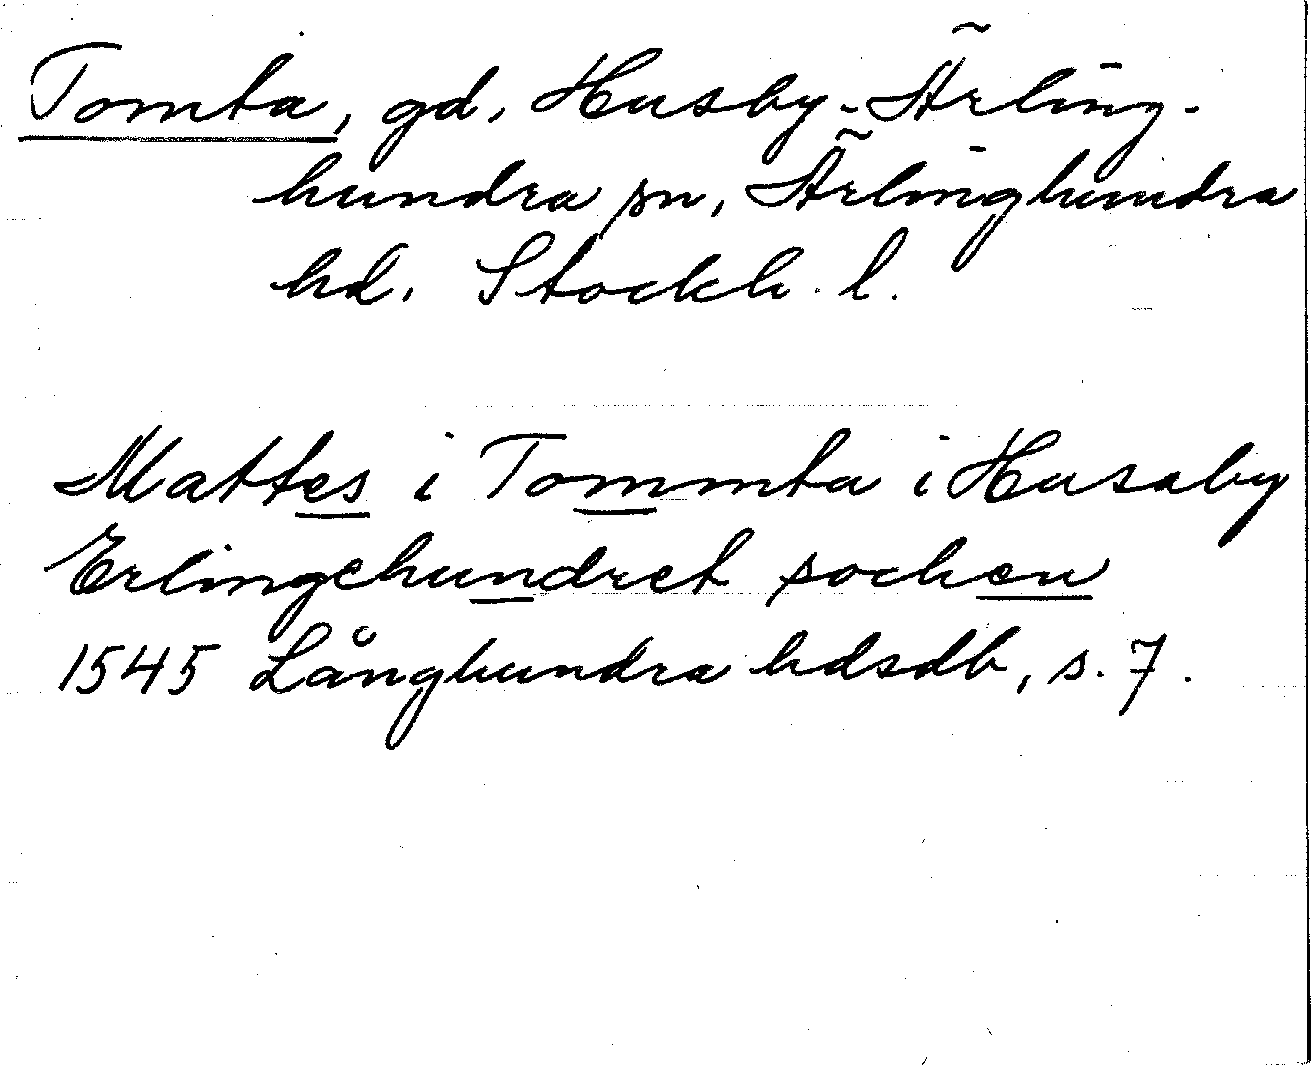 Tomta, gd, Husby-Ärling-
hundra sn, Ärlinghundra
hd, Stockh. l.
Mattes i Tommta i Husaby
Erlingehundret sochen
1545 Långhundra hdsdb, s. 7.